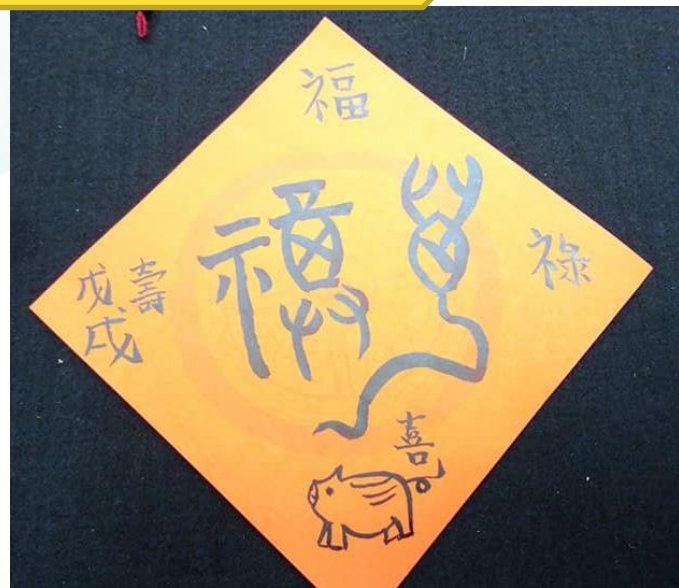 福
祿
壽
戊戌
喜